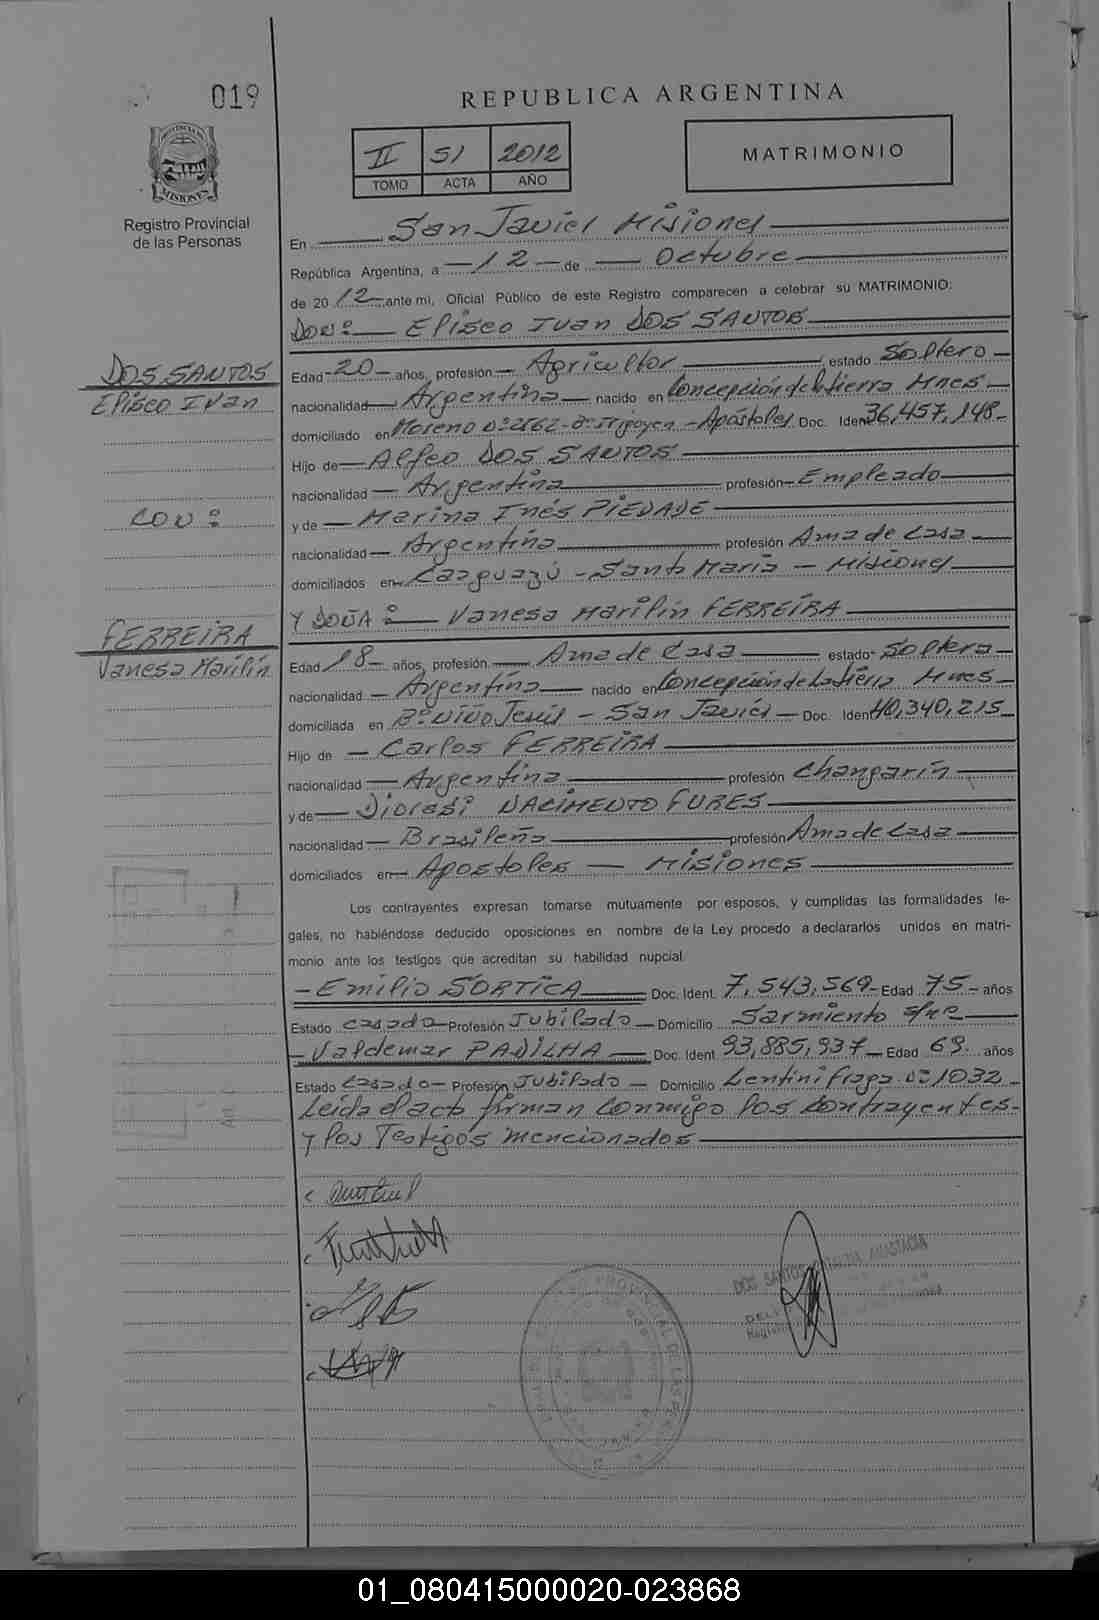 019
REPUBLICA ARGENTINA
II 51 2012
TOMO ACTA AÑO
MATRIMONIO
PROVINCIA DE MISIONES
Registro Provincial
de las Personas
En San Javier Misiones
República Argentina, a -12- de Octubre
de 2012 ante mi, Oficial Público de este Registro comparecen a celebrar su MATRIMONIO:
DON: Eliseo Ivan DOS SANTOS
DOS SANTOS
Eliseo Ivan
CON:
FERREIRA
Vanesa Marilin
Edad -20- años, profesión - Agricultor estado Soltero -
nacionalidad Argentina nacido en Concepción de la Sierra Mnes -
domiciliado en Moreno Nº 2662 - Bº Irigoyen - Apóstoles Doc. Iden 36,457,148-
Hijo de - Alfeo DOS SANTOS
nacionalidad - Argentina profesión - Empleado
y de - Marina Inés PIEDADE
nacionalidad - Argentina profesión Ama de Casa
domiciliados en Caaguazú - Santa María - Misiones
Y DOÑA: Vanesa Marilín FERREIRA
Edad 18- años, profesión Ama de Casa estado Soltera -
nacionalidad - Argentina nacido en Concepción de la Sierra Mnes -
domiciliada en Bº Niño Jesús - San Javier - Doc. Iden 40,340,215
Hijo de - Carlos FERREIRA
nacionalidad - Argentina profesión Changarín
y de NACIMENTO FURES
nacionalidad - Brasileña profesión Ama de Casa
domiciliados en Apostoles - Misiones
Los contrayentes expresan tomarse mutuamente por esposos, y cumplidas las formalidades le-
gales, no habiéndose deducido oposiciones en nombre de la Ley procedo a declararlos unidos en matri-
monio ante los testigos que acreditan su habilidad nupcial.
- Emilio SORTICA Doc. Ident. 7,543,569- Edad 75 - años
Estado Casado - Profesión Jubilado - Domicilio Sarmiento
- Valdemar PADILHA Doc. Ident 93,885,937 - Edad 69 años
Estado Casado - Profesión Jubilado - Domicilio Lentini Fraga Nº 1032 -
Leída el acta firman conmigo los contrayentes -
y los Testigos mencionados
DOS SANTOS ANASTACIA
01_080415000020-023868